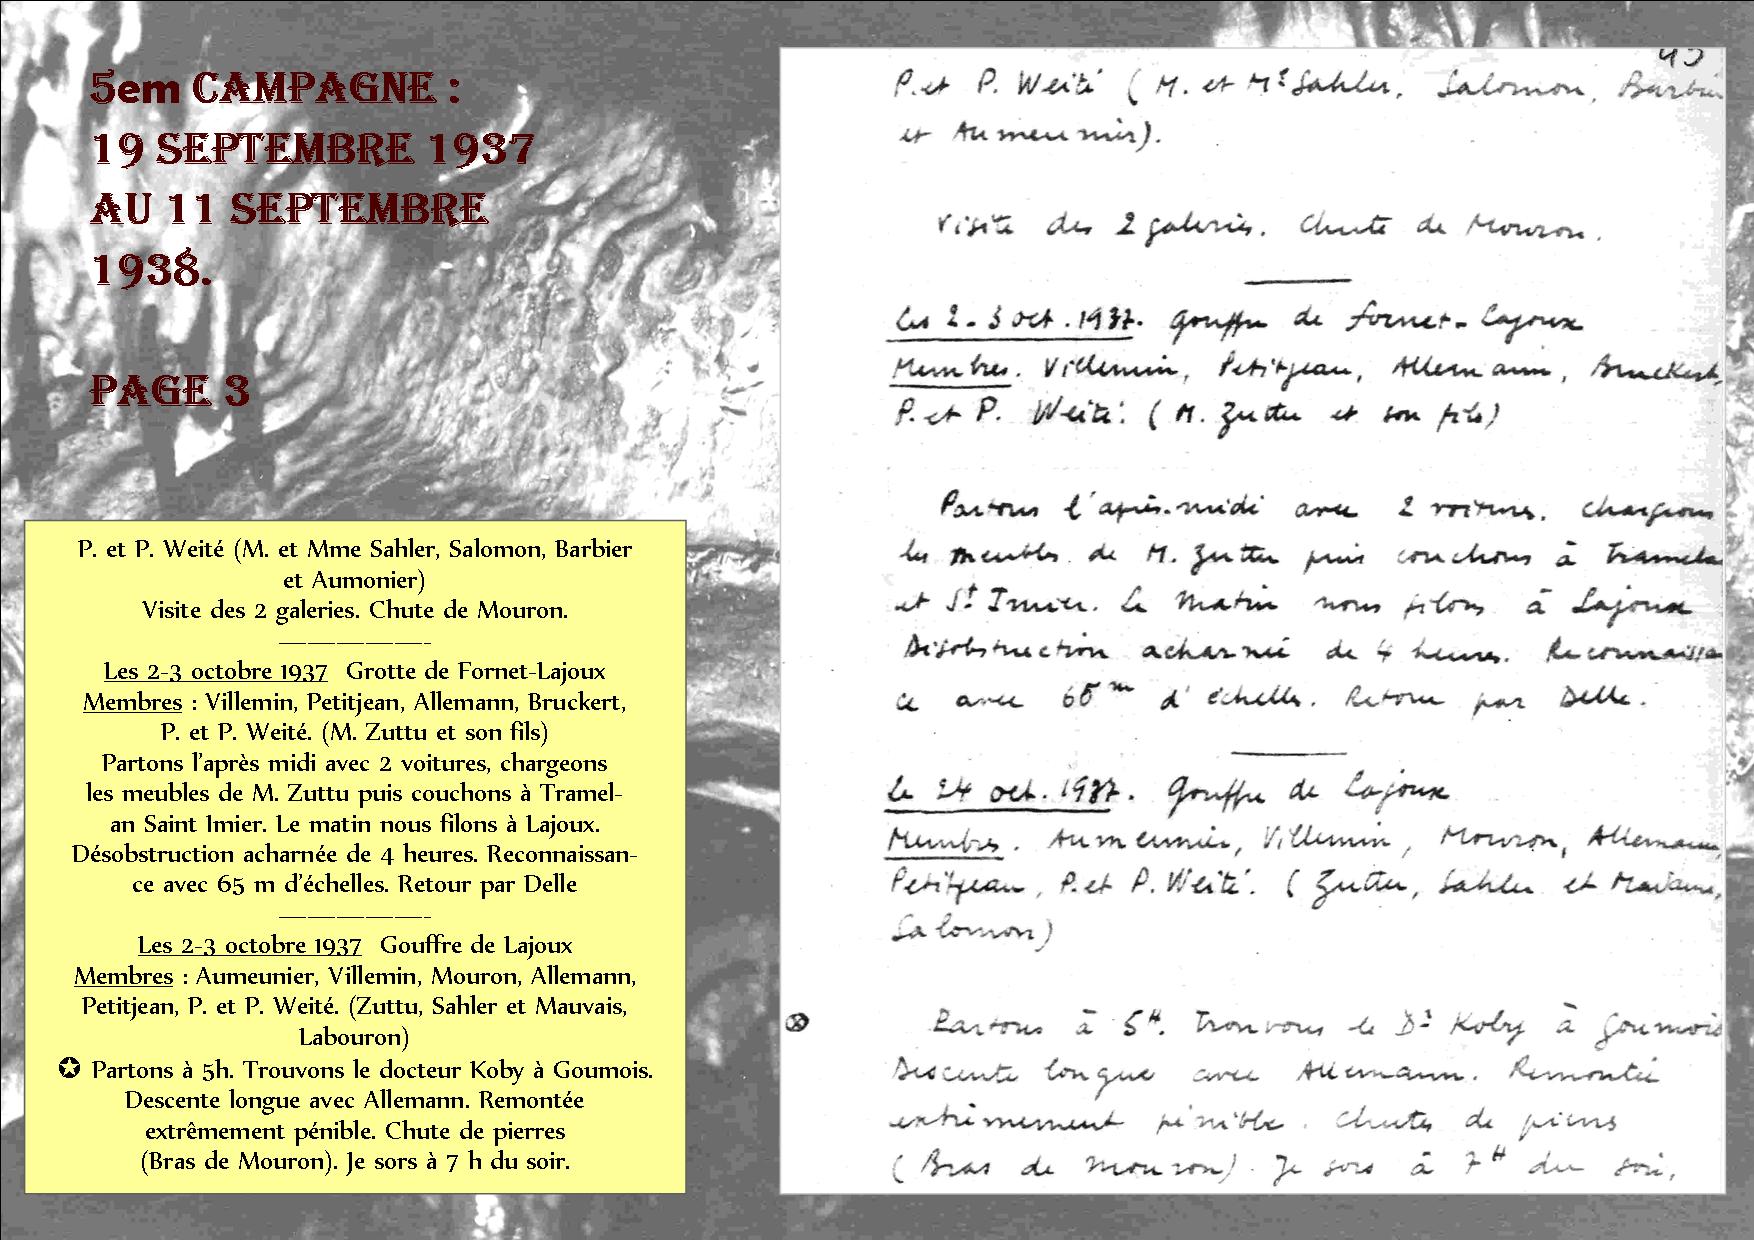 5em CAMPAGNE :
19 SEPTEMBRE 1937
AU 11 SEPTEMBRE
1938.
PAGE 3
P. et P. Weité (M. et Mme Sahler, Salomon, Barbier
et Aumonier)
Visite des 2 galeries. Chute de Mouron.
Les 2-3 octobre 1937 Grotte de Fornet-Lajoux
Membres : Villemin, Petitjean, Allemann, Bruckert,
P. et P. Weité. (M. Zuttu et son fils)
Partons l'après midi avec 2 voitures, chargeons
les meubles de M. Zuttu puis couchons à Tramel-
an Saint Imier. Le matin nous filons à Lajoux.
Désobstruction acharnée de 4 heures. Reconnaissan-
ce avec 65 m d'échelles. Retour par Delle
Les 2-3 octobre 1937 Gouffre de Lajoux
Membres : Aumeunier, Villemin, Mouron, Allemann,
Petitjean, P. et P. Weité. (Zuttu, Sahler et Mauvais,
Labouron)
✪ Partons à 5h. Trouvons le docteur Koby à Goumois.
Descente longue avec Allemann. Remontée
extrêmement pénible. Chute de pierres
(Bras de Mouron). Je sors à 7 h du soir.
P. et P. Weité (M. et Me Sahler, Salomon, Barbier
et Aumeunier).
Visite des 2 galeries. Chute de Mouron.
Les 2-3 oct. 1937. Gouffre de Fornet-Lajoux
Membres. Villemin, Petitjean, Allemann, Bruckert,
P. et P. Weité. (M. Zuttu et son fils)
Partons l'après-midi avec 2 voitures. Chargeons
les meubles de M. Zuttu puis couchons à Tramela
et St Imier. Le matin nous filons à Lajoux
Désobstruction acharnée de 4 heures. Reconnaissan
ce avec 65 m d'échelles. Retour par Delle.
Le 24 oct. 1937. Gouffre de Lajoux
Membres. Aumeunier, Villemin, Mouron, Allemann,
Petitjean, P. et P. Weité. (Zuttu, Sahler et Madame,
Salomon)
Partons à 5H. Trouvons le Dr Koby à Goumois
Descente longue avec Allemann. Remontée
extrêmement pénible. Chutes de pierres
(Bras de Mouron). Je sors à 7H du soir,